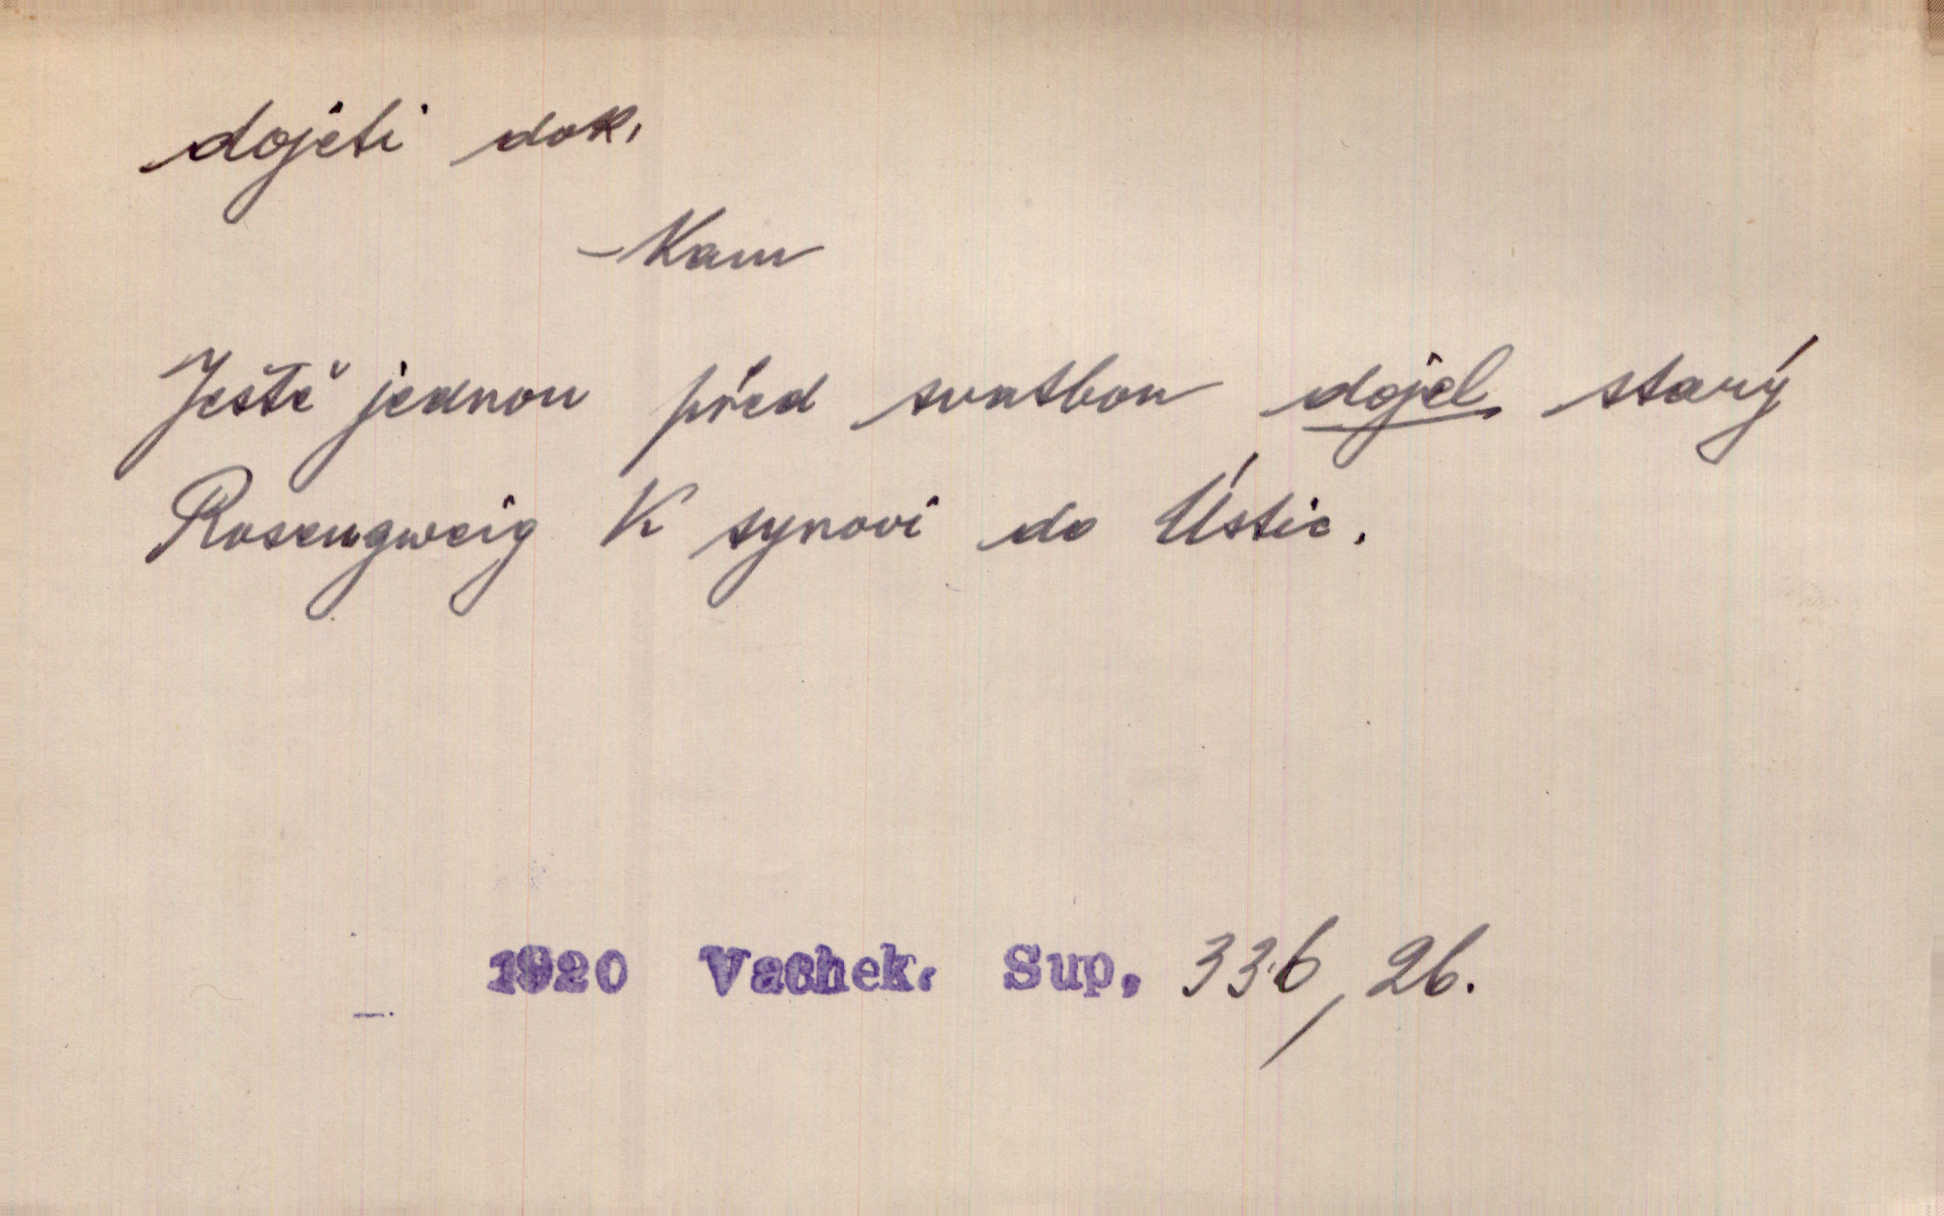 dojeti dok.
- Kam
Ještě jednou před svatbou dojel starý
Rosengweig K synovi do Ústic.
1920 Vachek. Sup, 336, 26.